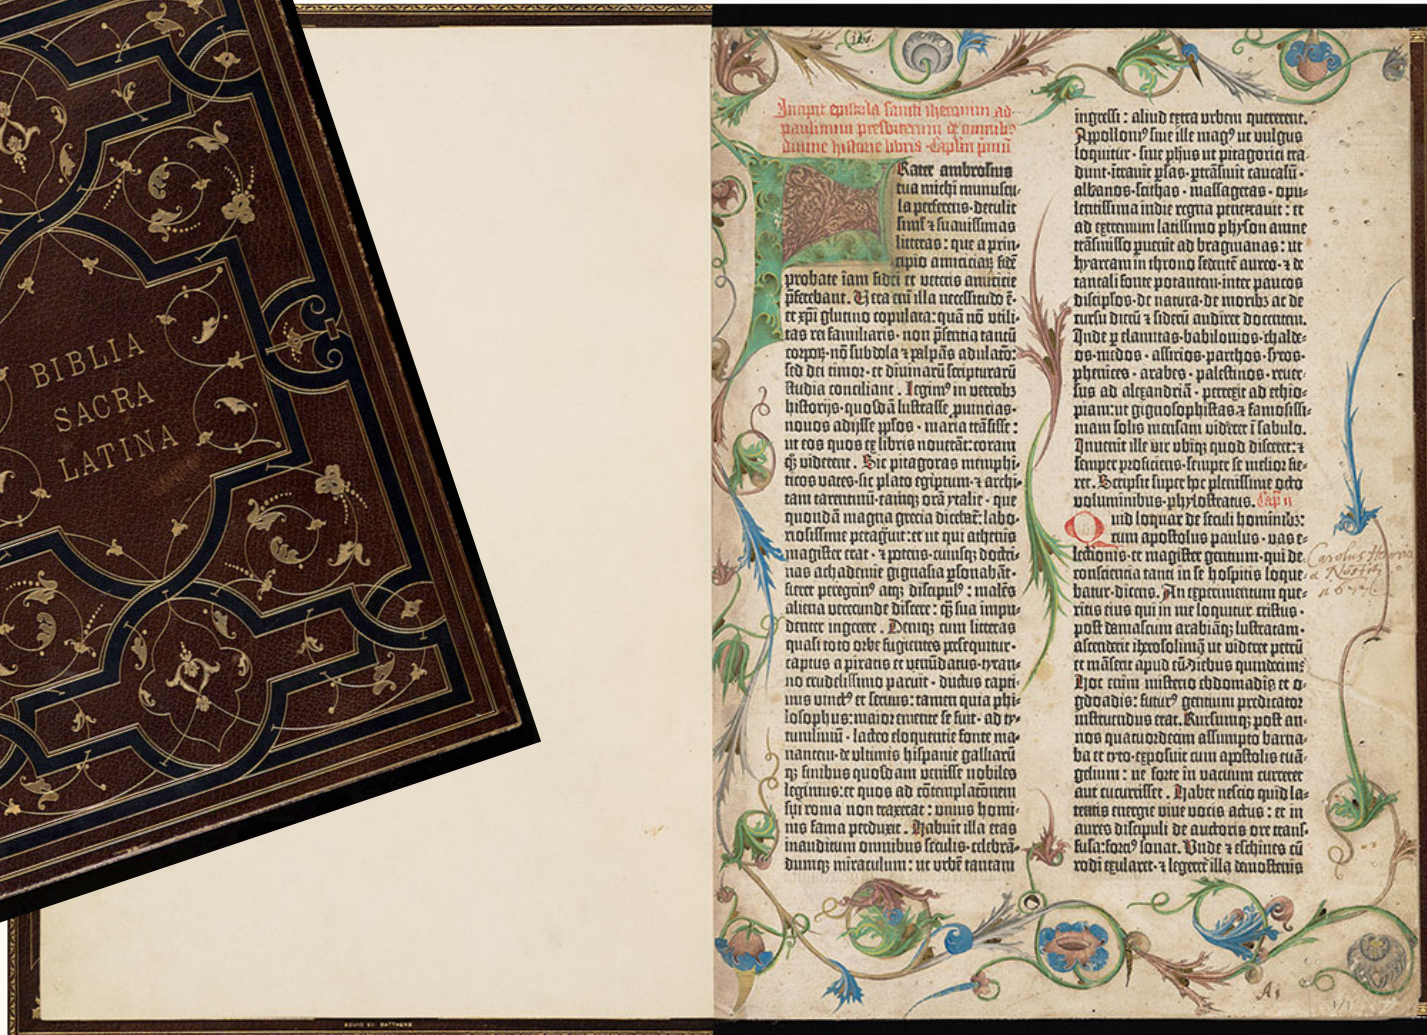 BIBLIA
SACRA
LATINA
Incipit epistola sancti iheronimi ad
paulinum presbiterum de omnibus
divine historie libris · Capitulū primū
Frater ambrosius
tua michi munuscu-
la perferens · detulit
simul ⁊ suavissimas
litteras : que a prin-
cipio amiciciaꝝ fidē
probate iam fidei et veteris amicicie
pferebant . Vera eni illa necessitudo ē ·
et xp̄i glutino copulata : quā nō utili-
tas rei familiaris · non p̄sentia tantū
corporꝝ · nō subdola ⁊ palpās adulatō :
sed dei timor · et divinarū scripturarū
studia conciliant . Legimꝰ in veteribꝫ
historijs · quosdā lustrasse ꝓuincias ·
nouos adijsse pplos · maria trāsisse :
ut eos quos ex libris nouerāt : coram
qꝫ viderent . Sic pitagoras memphi-
ticos vates · sic plato egiptum · ⁊ archi-
tam tarentinū · eamqꝫ orā ytalie · que
quondā magna grecia dicebat̄ : labo-
riosissime peragivit : et ut qui athenis
magister erat · ⁊ potens · cuiusqꝫ doctri-
nas achademie gignasia ꝑsonabāt ·
fieret peregrinꝰ atqꝫ discipulꝰ : malēs
aliena verecunde discere : qꝫ sua impu-
denter ingerere . Deniqꝫ cum litteras
quasi toto orbe fugientes persequitur ·
captus a piratis et venūdatus · tyran-
no crudelissimo paruit · ductus capti-
uus vinctꝰ et seruus : tamen quia phi-
losophus : maior emente se fuit · ad ty-
tumliuiū · lacteo eloquentie fonte ma-
nantem · de ultimis hispanie galliarū
qꝫ finibus quosdam venisse nobiles
legimus : et quos ad cōtemplationem
sui roma non traxerat : unius homi-
nis fama perduxit . Habuit illa etas
inauditum omnibus seculis · celebrā-
dumqꝫ miraculum : ut urbē tantam
ingressi : aliud extra urbem quererent .
Appolloniꝰ siue ille magꝰ ut vulgus
loquitur · siue phūs ut pitagorici tra-
dunt · ītrauit ꝑsas · ptrāsiuit caucasū ·
albanos · scithas · massagetas · opu-
lentissima indie regna penetrauit : et
ad extremum latissimo physon amne
trāsmisso puenit ad bragmanas : ut
hyarcam in throno sedentē aureo · ⁊ de
tantali fonte potantem · inter paucos
discipulos · de natura · de moribꝫ ac de
cursu dierū ⁊ siderū audiret docentem .
Inde ꝑ elamitas · babilonios · chalde-
os · medos · assirios · parthos · syros ·
phenices · arabes · palestinos · reuer-
sus ad alexandriā · perrexit ad ethio-
piam : ut gignosophistas ⁊ famosissi-
mam solis mensam videret ī sabulo .
Inuenit ille vir ubiqꝫ quod disceret : ⁊
semper proficiens · semper se melior fie-
ret . Scripsit super hoc plenissime octo
voluminibus · phylostratus . Cap̄ ii
Quid loquar de seculi hominibꝫ :
cum apostolus paulus · vas e-
lectionis · et magister gentium · qui de
consciencia tanti in se hospitis loque-
batur · dicens . An experimentum que-
ritis eius qui in me loquitur cristus ·
post damascum arabiāqꝫ lustratam ·
ascenderit iherosolimā ut videret petrū
et māserit apud eū diebus quindecim :
Hoc enim misterio ebdomadis et o-
gdoadis : futurꝰ gentium predicator
instruendus erat . Rursumqꝫ post an-
nos quatuordecim assumpto barna-
ba et tyto · exposuit cum apostolis euā-
gelium : ne forte in vacuum curreret
aut cucurrisset . Habet nescio quid la-
tentis energie viue vocis actus : et in
aures discipuli de auctoris ore trans-
fusa : fortiꝰ sonat . Unde ⁊ eschines cū
rodi exularet · ⁊ legeret̄ illa demostenis
Carolus
A 1
BOUND BY MATTHEWS